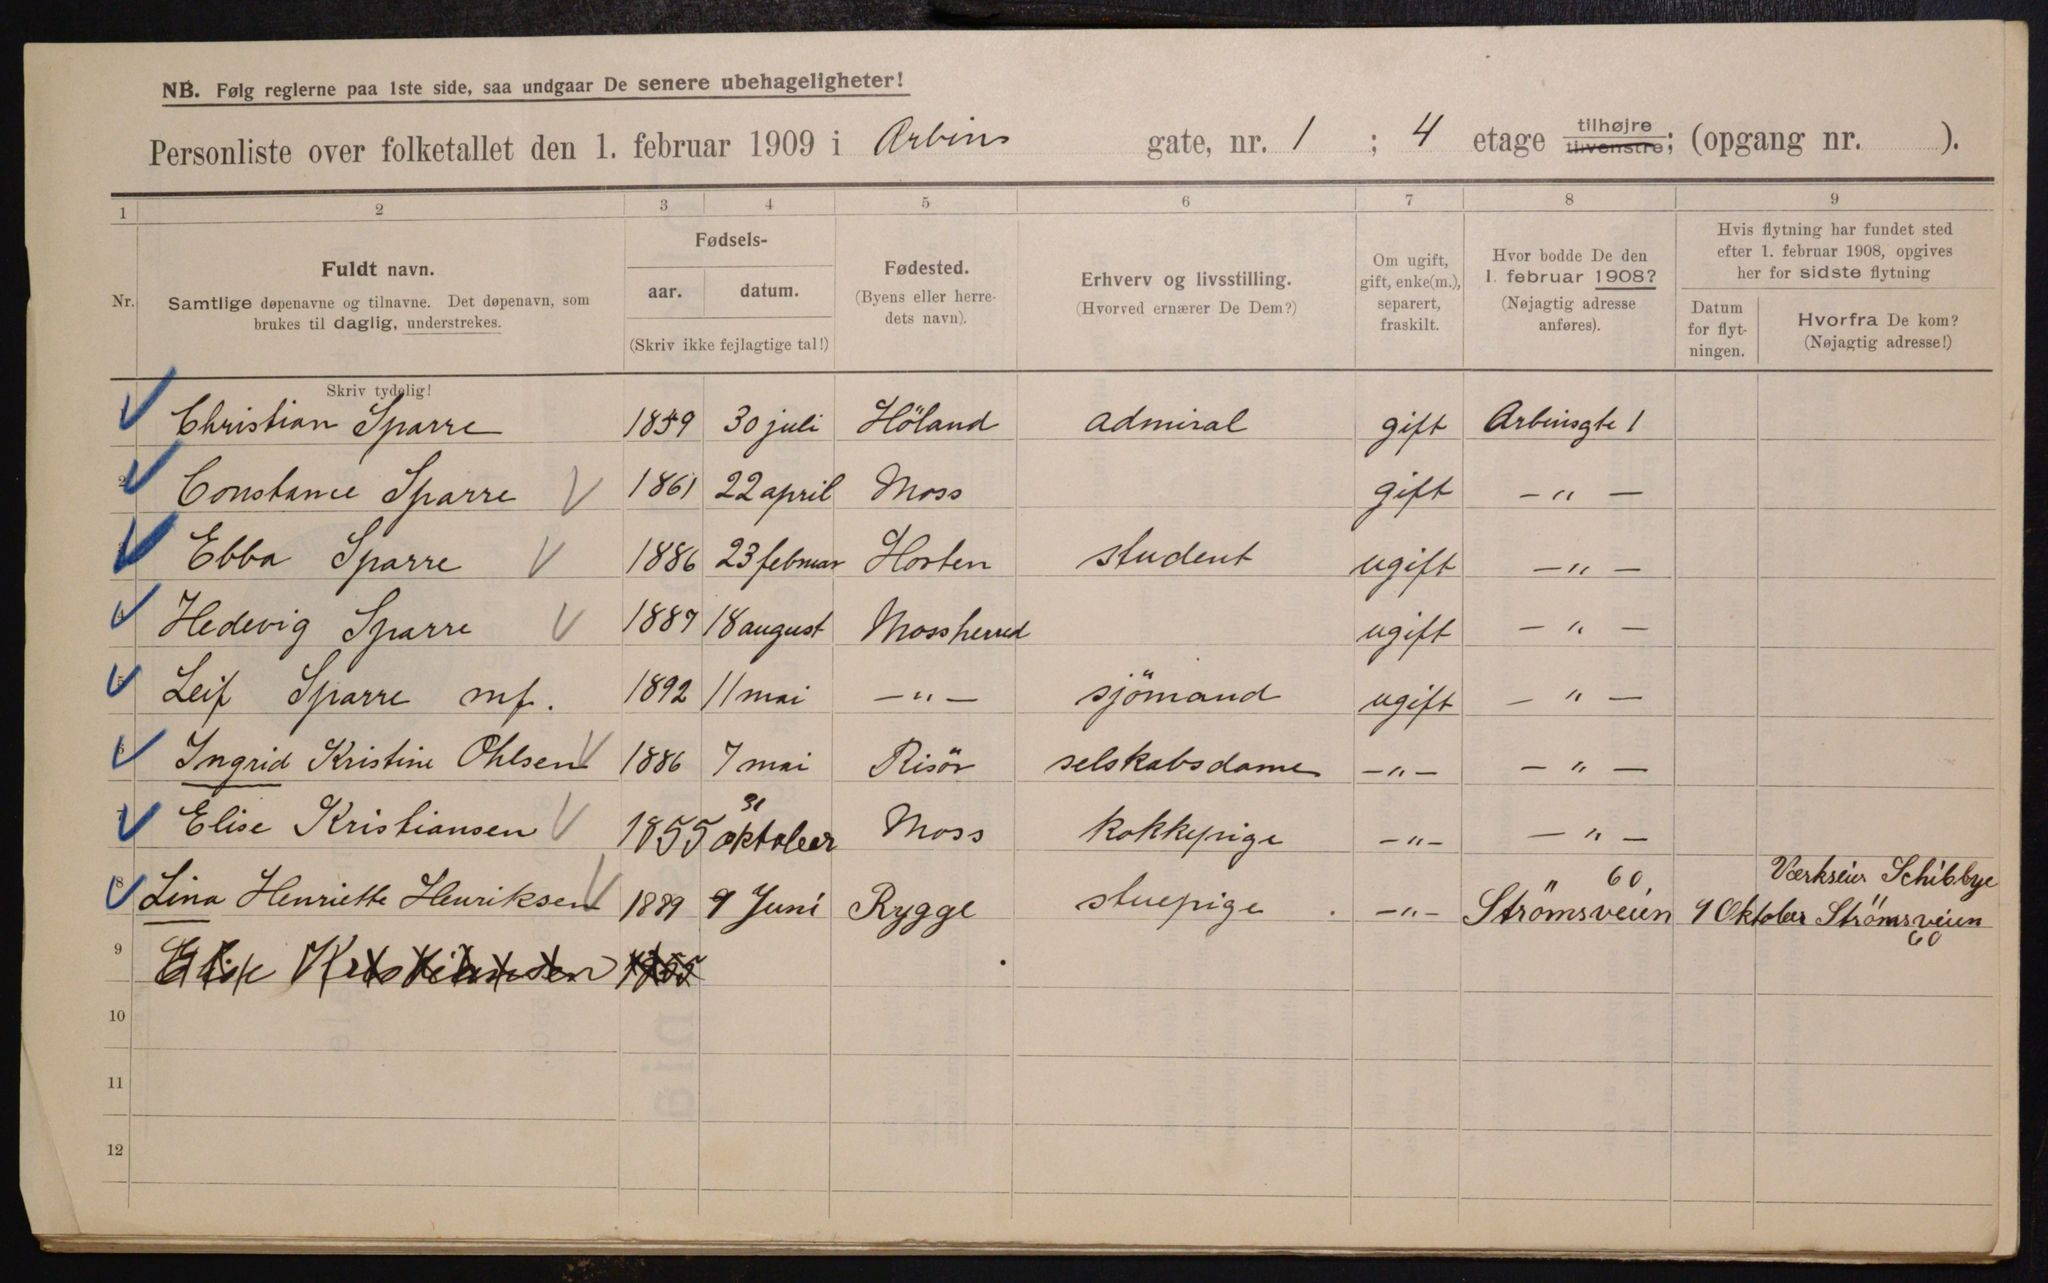 NB. Følg reglerne paa 1ste side, saa undgaar De senere ubehageligheter!
Personliste over folketallet den 1. februar 1909 i Arbins gate, nr. 1 ; 4 etage tilhøjre tilvenstre; (opgang nr. ).
1 2 3 4 5 6 7 8 9
Nr. Fuldt navn. Samtlige døpenavne og tilnavne. Det døpenavn, som brukes til daglig, understrekes.
Fødsels- aar. datum. (Skriv ikke fejlagtige tal!)
Fødested. (Byens eller herredets navn).
Erhverv og livsstilling. (Hvorved ernærer De Dem?)
Om ugift, gift, enke(m.), separert, fraskilt.
Hvor bodde De den 1. februar 1908? (Nøjagtig adresse anføres).
Hvis flytning har fundet sted efter 1. februar 1908, opgives her for sidste flytning
Datum for flytningen.
Hvorfra De kom? (Nøjagtig adresse!)
Skriv tydelig!
Christian Sparre 1859 30 juli Höland admiral gift Arbinsgte 1
2 Constance Sparre 1861 22 april Moss gift — " —
3 Ebba Sparre 1886 23 februar Horten student ugift — " —
4 Hedevig Sparre 1887 18 august Mossherred ugift — " —
5 Leif Sparre mf. 1892 11 mai — " — sjömand ugift — " —
6 Ingrid Kristine Ohlsen 1886 7 mai Risör selskabsdame — " — — " —
7 Elise Kristiansen 1855 31 oktober Moss kokkepige — " — — " —
8 Lina Henriette Henriksen 1889 9 Juni Rygge stuepige — " — Strömsveien 60 9 Oktober Værkseier Schibbye Strömsveien 60
9 Elise Kristiansen 1855
10
11
12